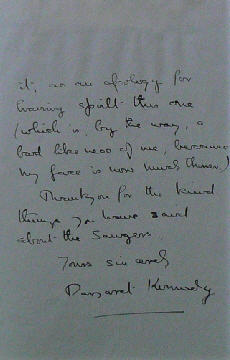 it, as an apology for
having spoilt this one
(which is, by the way, a
bad likeness of me, because
my face is now much thinner.)
Thankyou for the kind
things you have said
about the Sangers
Yours sincerely
Margaret Kennedy